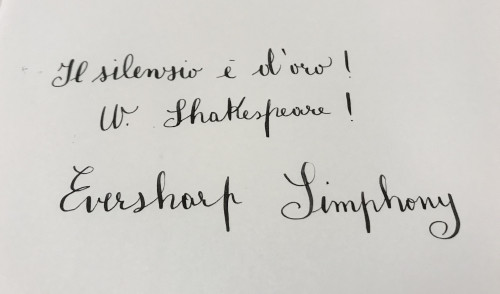 Il silensio è d'oro!
W. Shakespeare!
Eversharp Simphony